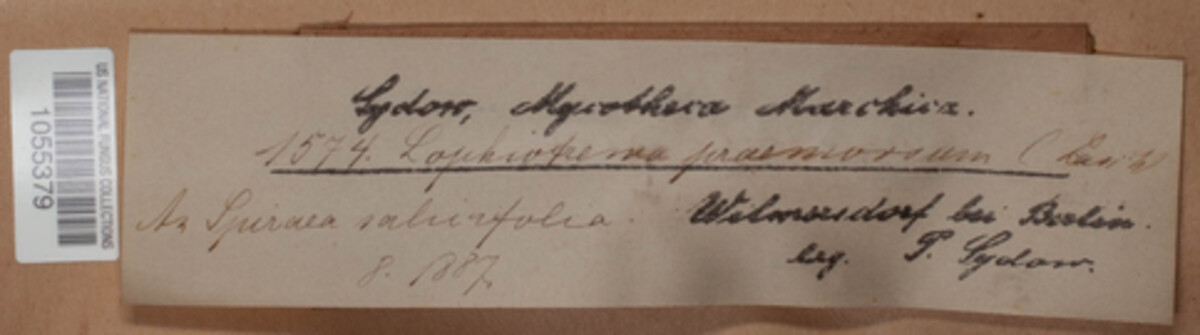 Sydow, Mycotheca Marchica.
1574. Lophiotrema praemorsum (Lasch)
An Spiraea salicifolia.
8. 1887.
Wilmersdorf bei Berlin.
leg. P. Sydow.
US NATIONAL FUNGUS COLLECTIONS
1055379